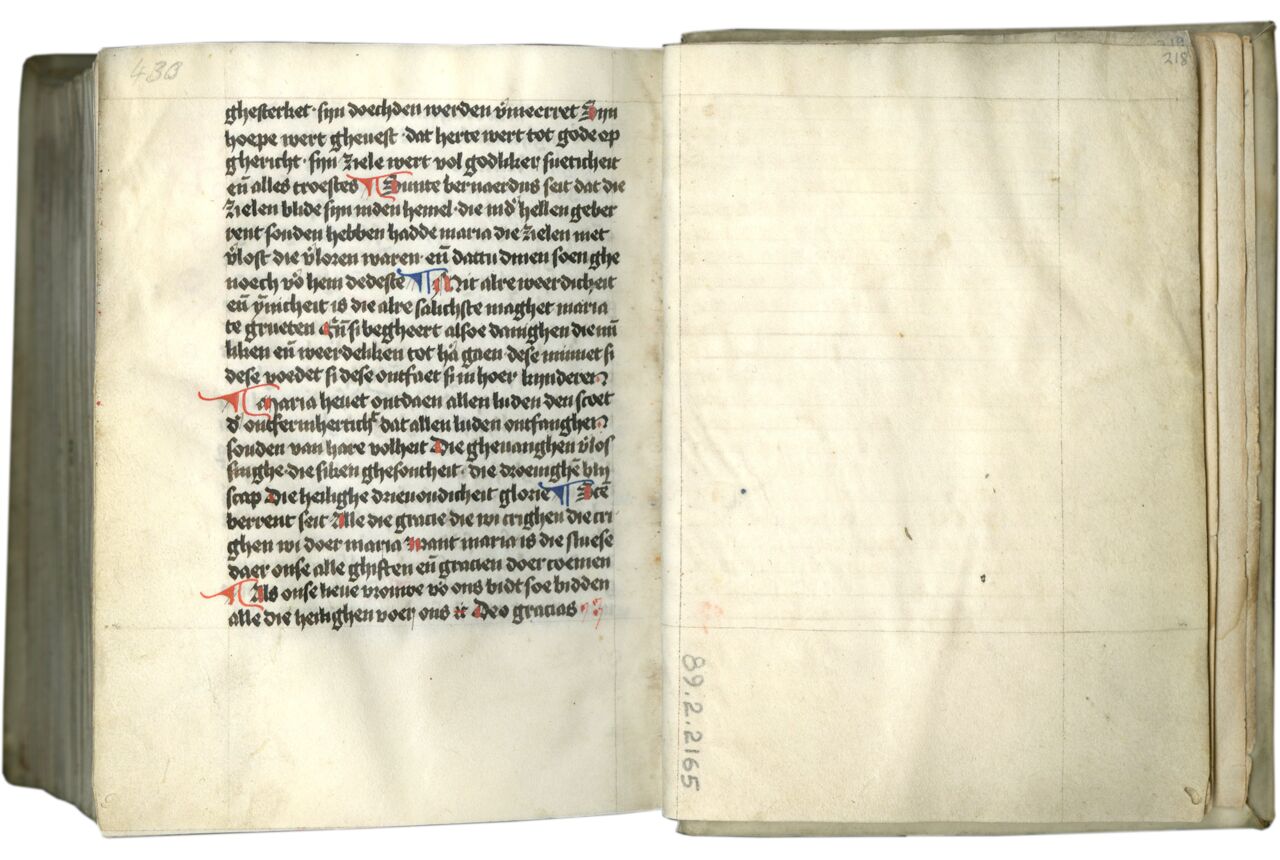 433
ghesterket · sijn doechden werden v̄meerret Sijn
hoepe wert gheuest · dat herte wert tot gode op
ghericht · sijn ziele wert vol godliker sueticheit
en̄ alles troestes ¶ Sunte bernaerdus seit dat die
zielen blide sijn inden hemel · die ind' hellen geber
rent souden hebben hadde maria die zielen niet
v̄lost die v̄loren waren · en̄ dattu dinen soen ghe
noech vō hem dedeste ¶ Mit alre weerdicheit
en̄ ÿnicheit is die alre salichste maghet maria
te grueten En̄ si begheert alsoe danighen die min̄
liken en̄ weerdeliken tot hā gaen · dese minnet si
dese voedet si dese ontfaet si in hoer kinderen
¶ Maria heuet ontdaen allen luden den scoet
d' ontfermherticht̄ dat allen luden ontfanghen
souden van hare volheit Die gheuanghen v̄los
singhe · die siken ghesontheit · die droeuighē blij
scap Die heilighe drieuoudicheit glorie ¶ Sctē
bernent seit Alle die gracie die wi crighen die cri
ghen wi doer maria Want maria is die sluese
daer onse alle ghiften en̄ gracien doer coemen
¶ Als onse lieue vrouwe vō ons bidt soe bidden
alle die heilighen voer ons  Deo gracias
219
218
89.2.2165